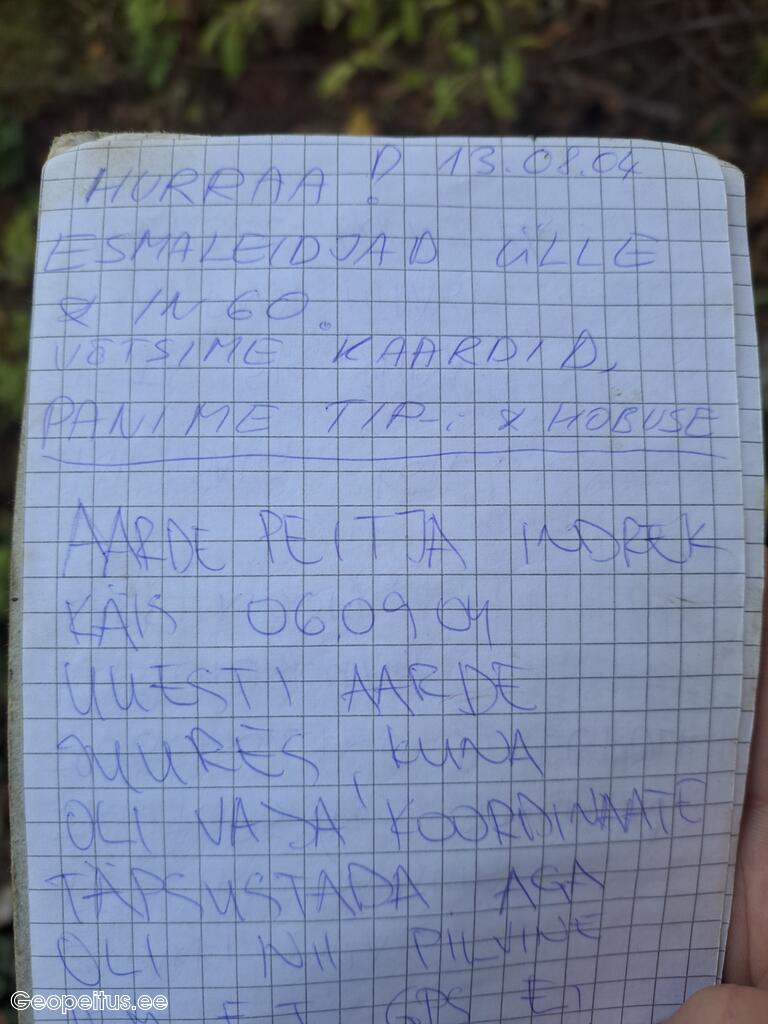 HURRAA! 13.08.04
ESMALEIDJAD ÜLLE
& INGO.
VÕTSIME KAARDID,
PANIME TIP-i & HOBUSE
AARDE PEITJA INDREK
KÄIS 06.09 04
UUESTI AARDE
JUURES, KUNA
OLI VAJA KOORDINAATE
TÄPSUSTADA AGA
OLI NII PILVINE
ET GPS EI
Geopeitus.ee